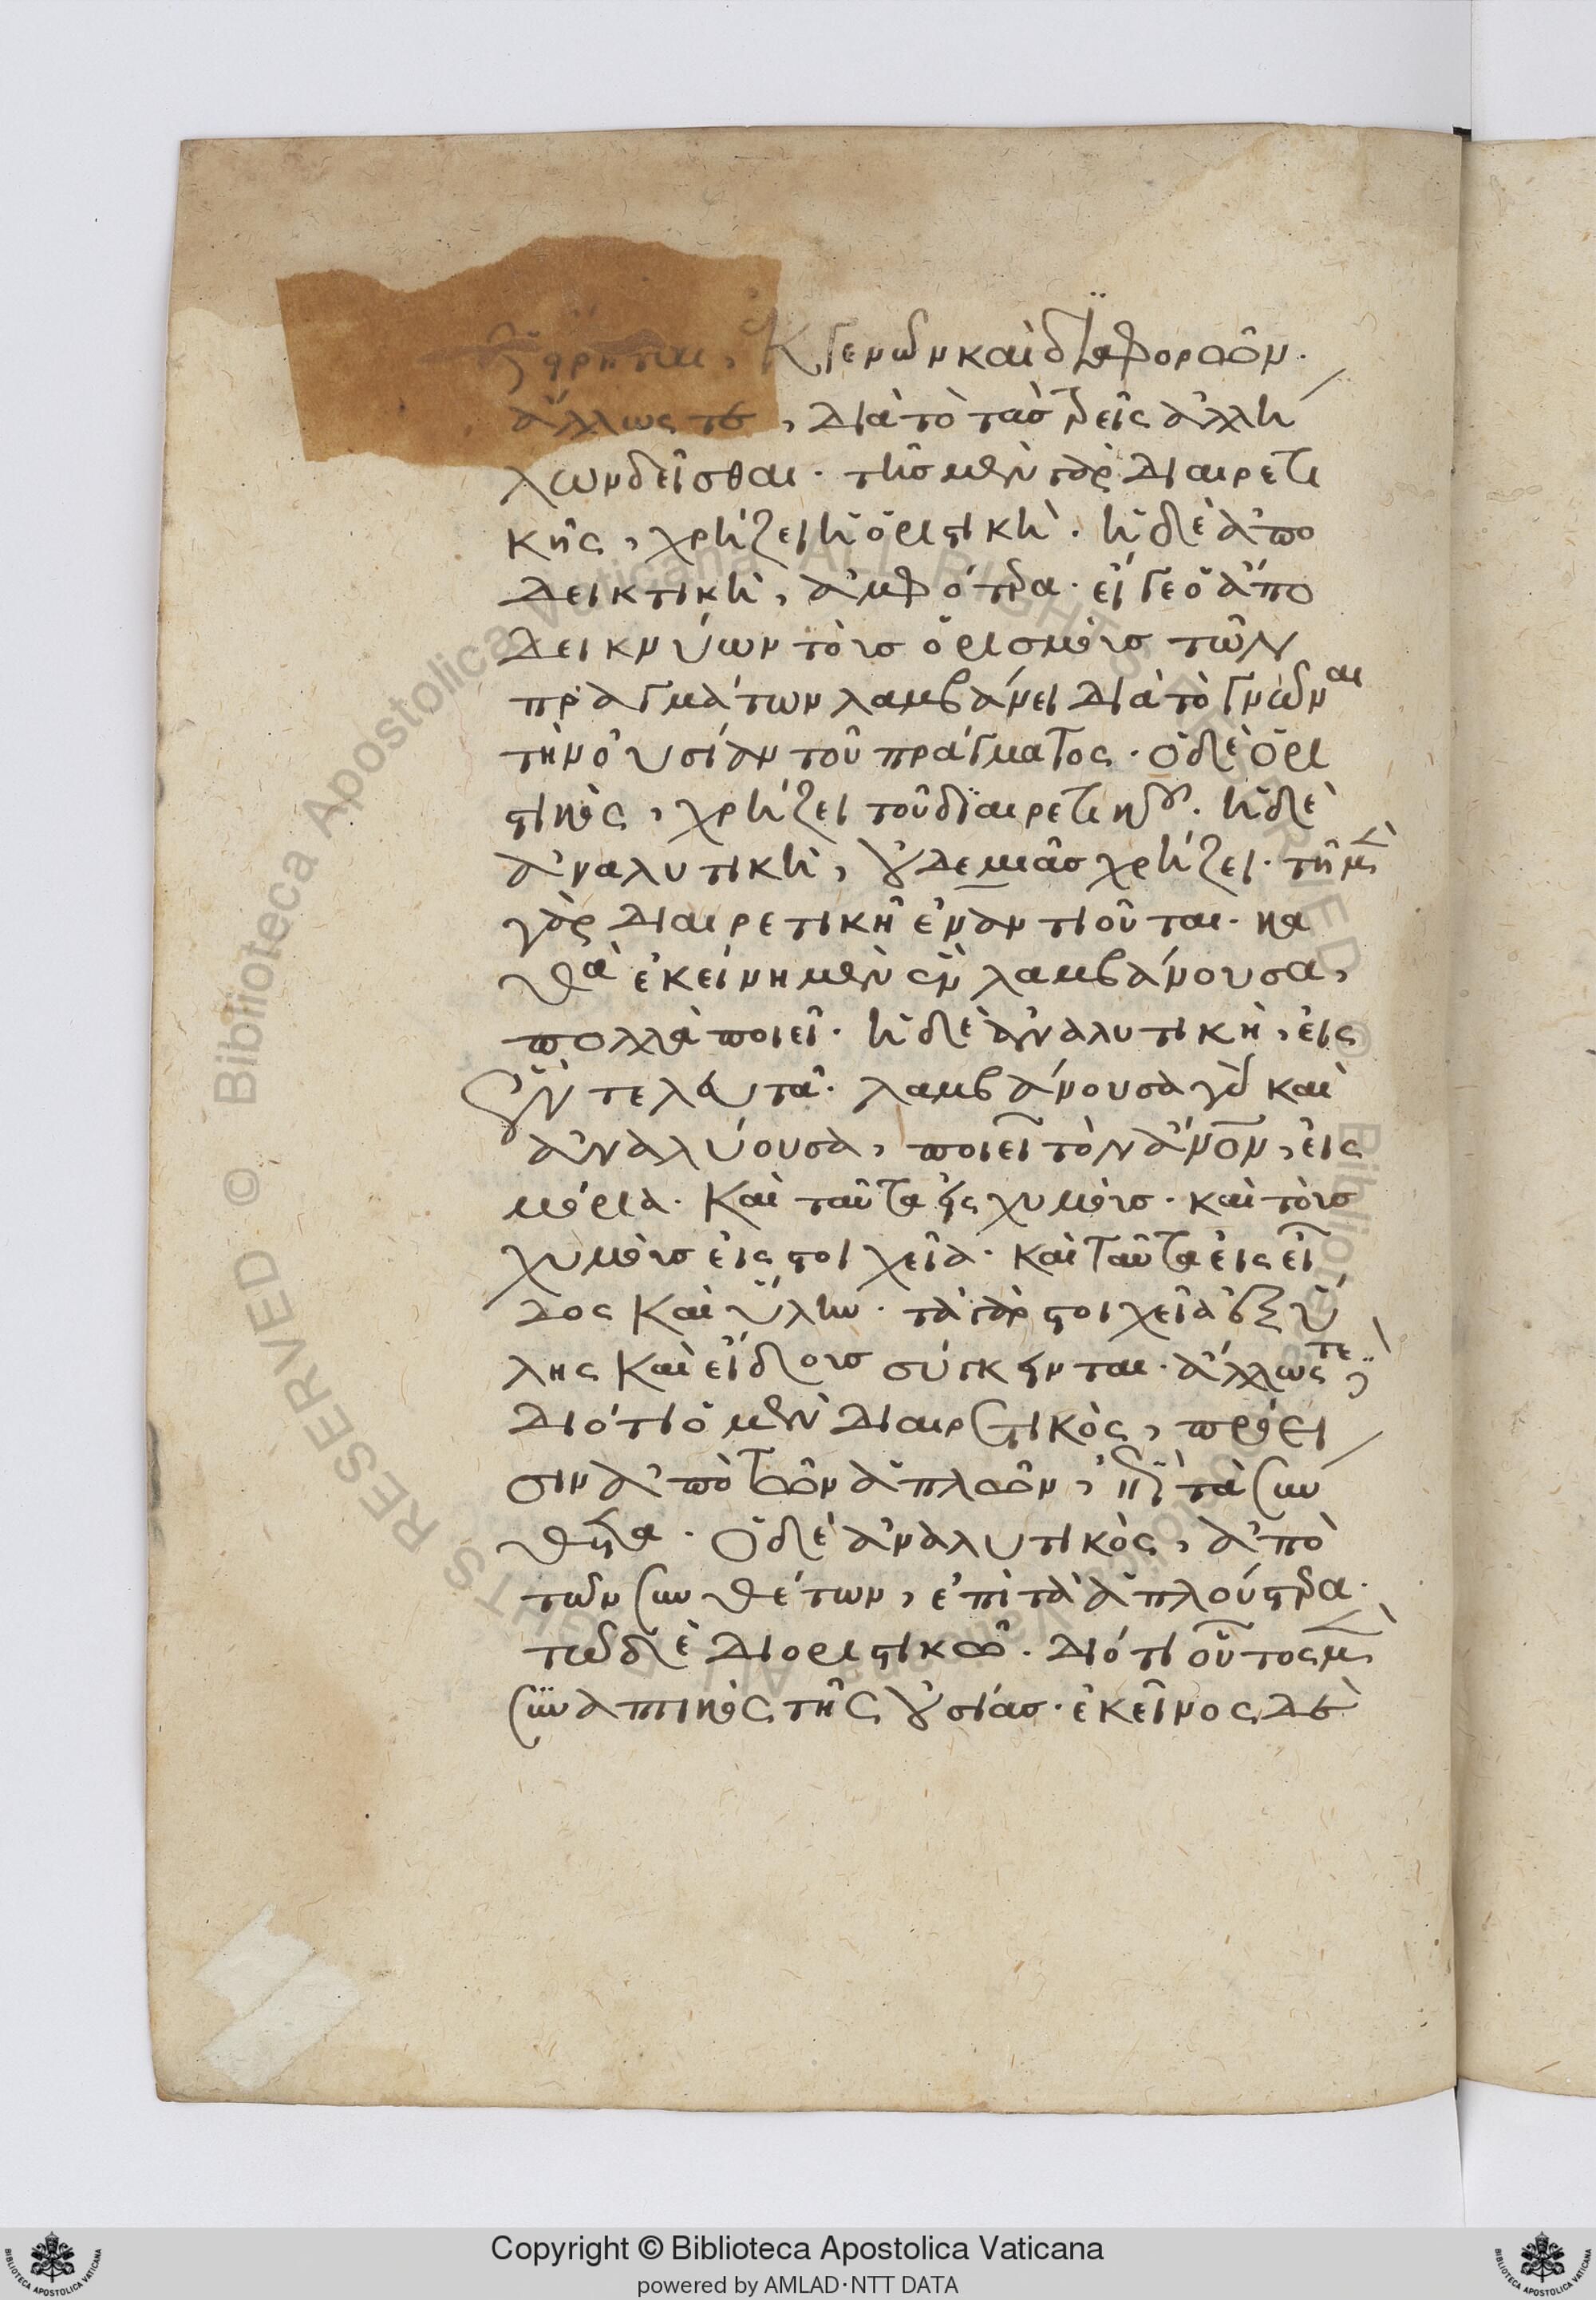 ἐξήρηται, ἐκ γενῶν καὶ διαφορῶν.
ἄλλως τε, διὰ τὸ τὰς τρεῖς ἀλλή
λων δεῖσθαι. τῆς μὲν γὰρ διαιρετι
κῆς, χρήζει ἡ ὁριστικὴ. ἡ δὲ ἀπο
δεικτικὴ, ἀμφότερα. εἴ γε ὁ ἀπο
δεικνύων τοὺς ὁρισμοὺς τῶν
πραγμάτων λαμβάνει διὰ τὸ γνῶναι
τὴν οὐσίαν τοῦ πράγματος. ὁ δὲ ὁρι
στικὸς, χρήζει τοῦ διαιρετικοῦ. ἡ δὲ
ἀναλυτικὴ, οὐδεμιᾶς χρήζει. τῆ μὲν
γὰρ διαιρετικῆ ἐναντιοῦται. κα
θὰ ἐκείνη μὲν ἓν λαμβάνουσα,
πολλὰ ποιεῖ. ἡ δὲ ἀναλυτικὴ, εἰς
ἓν τελευτᾶ. λαμβάνουσα γὰρ καὶ
ἀναλύουσα, ποιεῖ τὸν ἄνον, εἰς
μόρια. καὶ ταῦτα εἰς χυμοὺς. καὶ τοὺς
χυμοὺς εἰς στοιχεῖα. καὶ ταῦτα εἰς εἶ
δος καὶ ὕλην. τὰ γὰρ στοιχεῖα ἐξ ὕ
λης καὶ εἴδους σύγκεινται. ἄλλως τε,
διότι ὁ μὲν διαιρετικὸς, πρόει
σιν ἀπὸ τῶν ἁπλῶν, ἐπὶ τὰ συν
θετα. ὁ δὲ ἀναλυτικὸς, ἀπὸ
τῶν συνθέτων, ἐπὶ τὰ ἁπλούστερα.
τῶ δὲ διοριστικῶ. διότι οὗτος μὲν
συναπτικὸς τῆς οὐσίας. ἐκεῖνος δὲ
Copyright © Biblioteca Apostolica Vaticana
powered by AMLAD·NTT DATA